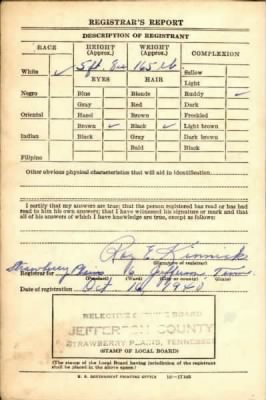 REGISTRAR'S REPORT
DESCRIPTION OF REGISTRANT
RACE HEIGHT (Approx.) WEIGHT (Approx.) COMPLEXION
White ✓ 5 ft. 8 in 165 lb. Sallow
EYES HAIR Light
Negro Blue Blonde Ruddy ✓
Gray Red Dark
Oriental Hazel Brown Freckled
Brown ✓ Black ✓ Light brown
Indian Black Gray Dark brown
Bald Black
Filipino
Other obvious physical characteristics that will aid in identification
I certify that my answers are true; that the person registered has read or has had
read to him his own answers; that I have witnessed his signature or mark and that
all of his answers of which I have knowledge are true, except as follows:
Roy E. Kinnick
(Signature of registrar)
Registrar for Strawberry Plains 16 Jefferson Tenn.
Date of registration Oct 16 1940
SELECTIVE SERVICE BOARD
JEFFERSON COUNTY
STRAWBERRY PLAINS, TENNESSEE
(STAMP OF LOCAL BOARD)
(The stamp of the Local Board having jurisdiction of the registrant
shall be placed in the above space.)
U. S. GOVERNMENT PRINTING OFFICE 16—17105